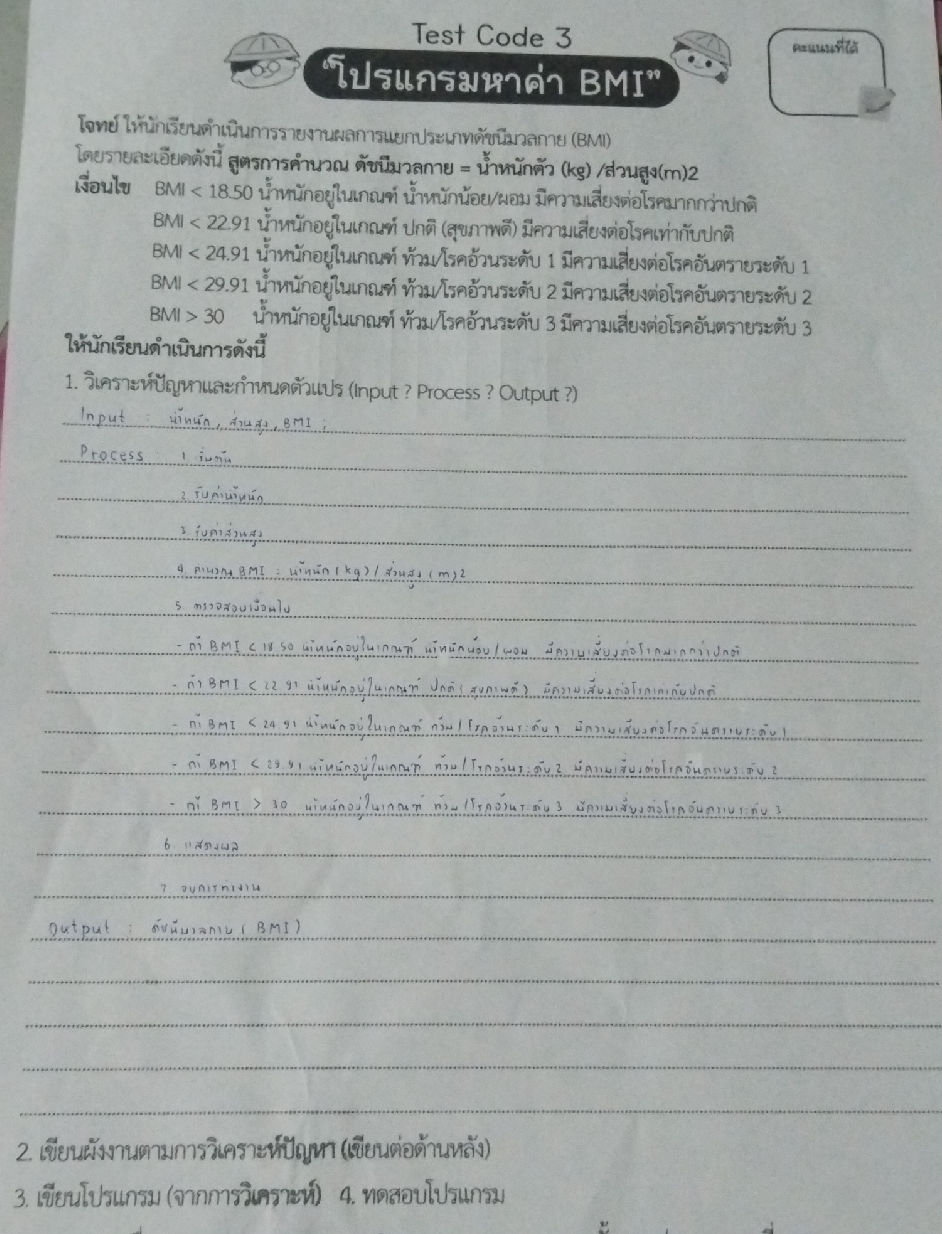 Test Code 3
"โปรแกรมหาค่า BMI"
คะแนนที่ได้
โจทย์ ให้นักเรียนดำเนินการรายงานผลการแยกประเภทดัชนีมวลกาย (BMI)
โดยรายละเอียดดังนี้ สูตรการคำนวณ ดัชนีมวลกาย = น้ำหนักตัว (kg) /ส่วนสูง(m)2
เงื่อนไข BMI < 18.50 น้ำหนักอยู่ในเกณฑ์ น้ำหนักน้อย/ผอม มีความเสี่ยงต่อโรคมากกว่าปกติ
BMI < 22.91 น้ำหนักอยู่ในเกณฑ์ ปกติ (สุขภาพดี) มีความเสี่ยงต่อโรคเท่ากับปกติ
BMI < 24.91 น้ำหนักอยู่ในเกณฑ์ ท้วม/โรคอ้วนระดับ 1 มีความเสี่ยงต่อโรคอันตรายระดับ 1
BMI < 29.91 น้ำหนักอยู่ในเกณฑ์ ท้วม/โรคอ้วนระดับ 2 มีความเสี่ยงต่อโรคอันตรายระดับ 2
BMI > 30 น้ำหนักอยู่ในเกณฑ์ ท้วม/โรคอ้วนระดับ 3 มีความเสี่ยงต่อโรคอันตรายระดับ 3
ให้นักเรียนดำเนินการดังนี้
1. วิเคราะห์ปัญหาและกำหนดตัวแปร (Input ? Process ? Output ?)
Input : น้ำหนัก, ส่วนสูง, BMI ;
Process : 1. เริ่มต้น
2. รับค่าน้ำหนัก
3. รับค่าส่วนสูง
4. คำนวณ BMI = น้ำหนัก (kg) / ส่วนสูง (m)2
5. ตรวจสอบเงื่อนไข
- ถ้า BMI < 18.50 น้ำหนักอยู่ในเกณฑ์ น้ำหนักน้อย/ผอม มีความเสี่ยงต่อโรคมากกว่าปกติ
- ถ้า BMI < 22.91 น้ำหนักอยู่ในเกณฑ์ ปกติ (สุขภาพดี) มีความเสี่ยงต่อโรคเท่ากับปกติ
- ถ้า BMI < 24.91 น้ำหนักอยู่ในเกณฑ์ ท้วม/โรคอ้วนระดับ 1 มีความเสี่ยงต่อโรคอันตรายระดับ 1
- ถ้า BMI < 29.91 น้ำหนักอยู่ในเกณฑ์ ท้วม/โรคอ้วนระดับ 2 มีความเสี่ยงต่อโรคอันตรายระดับ 2
- ถ้า BMI > 30 น้ำหนักอยู่ในเกณฑ์ ท้วม/โรคอ้วนระดับ 3 มีความเสี่ยงต่อโรคอันตรายระดับ 3
6. แสดงผล
7. จบการทำงาน
Output : ดัชนีมวลกาย (BMI)
2. เขียนผังงานตามการวิเคราะห์ปัญหา (เขียนต่อด้านหลัง)
3. เขียนโปรแกรม (จากการวิเคราะห์) 4. ทดสอบโปรแกรม